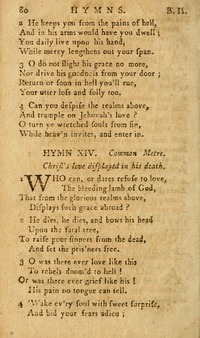 60 HYMNS. B. II.
2 He keeps you from the pains of hell,
And in his arms would have you dwell;
You daily live upon his hand,
While mercy lengthens out your span.
3 O do not slight his grace no more,
Nor drive his goodness from your door;
Return or soon in hell you'll rue,
Your utter loss and folly too.
4 Can you despise the realms above,
And trample on Jehovah's love?
O turn ye wretched souls from sin,
While heav'n invites, and enter in.
HYMN XIV. Common Metre.
Christ's love displayed in his death.
1 WHO can, or dares refuse to love,
The bleeding lamb of God,
That from the glorious realms above,
Displays such grace abroad?
2 He dies, he dies, and bows his head
Upon the fatal tree,
To raise poor sinners from the dead,
And set the pris'ners free.
3 O was there ever love like this
To rebels doom'd to hell!
Or was there ever grief like his!
His pain no tongue can tell.
4 'Wake ev'ry soul with sweet surprise,
And bid your fears adieu;